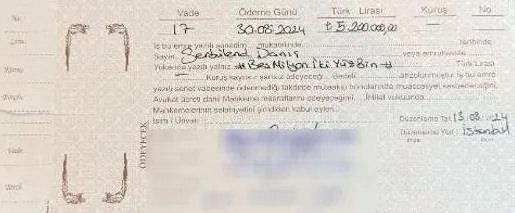 Vade Ödeme Günü Türk Lirası Kuruş No.
17 30.08.2024 ₺5.200.000,00 —
İş bu emre yazılı senedim mukabilinde tarihinde
Sayın: Şenbilend Danış veya emruhavale
Yukarıda yazılı yalnız #BeşMilyonİkiYüzBin# Türk Lirası
— Kuruş kayıtsız şartsız ödeyeceğiz. Bedeli ahzolunmuştur. İş bu emre
yazılı senet vadesinde ödenmediği takdirde müteakip bonolarında muacceliyet kesbedeceğini,
Avukat ücreti dahil Mahkeme masraflarını ödeyeceğimi. İhtilaf vukuunda
Mahkemelerinin selahiyetini şimdiden kabul ederi..
İsim / Ünvan: Düzenleme Tar. 13.08.2024
Düzenleme Yeri: İstanbul
ÖDEYECEK
Vade